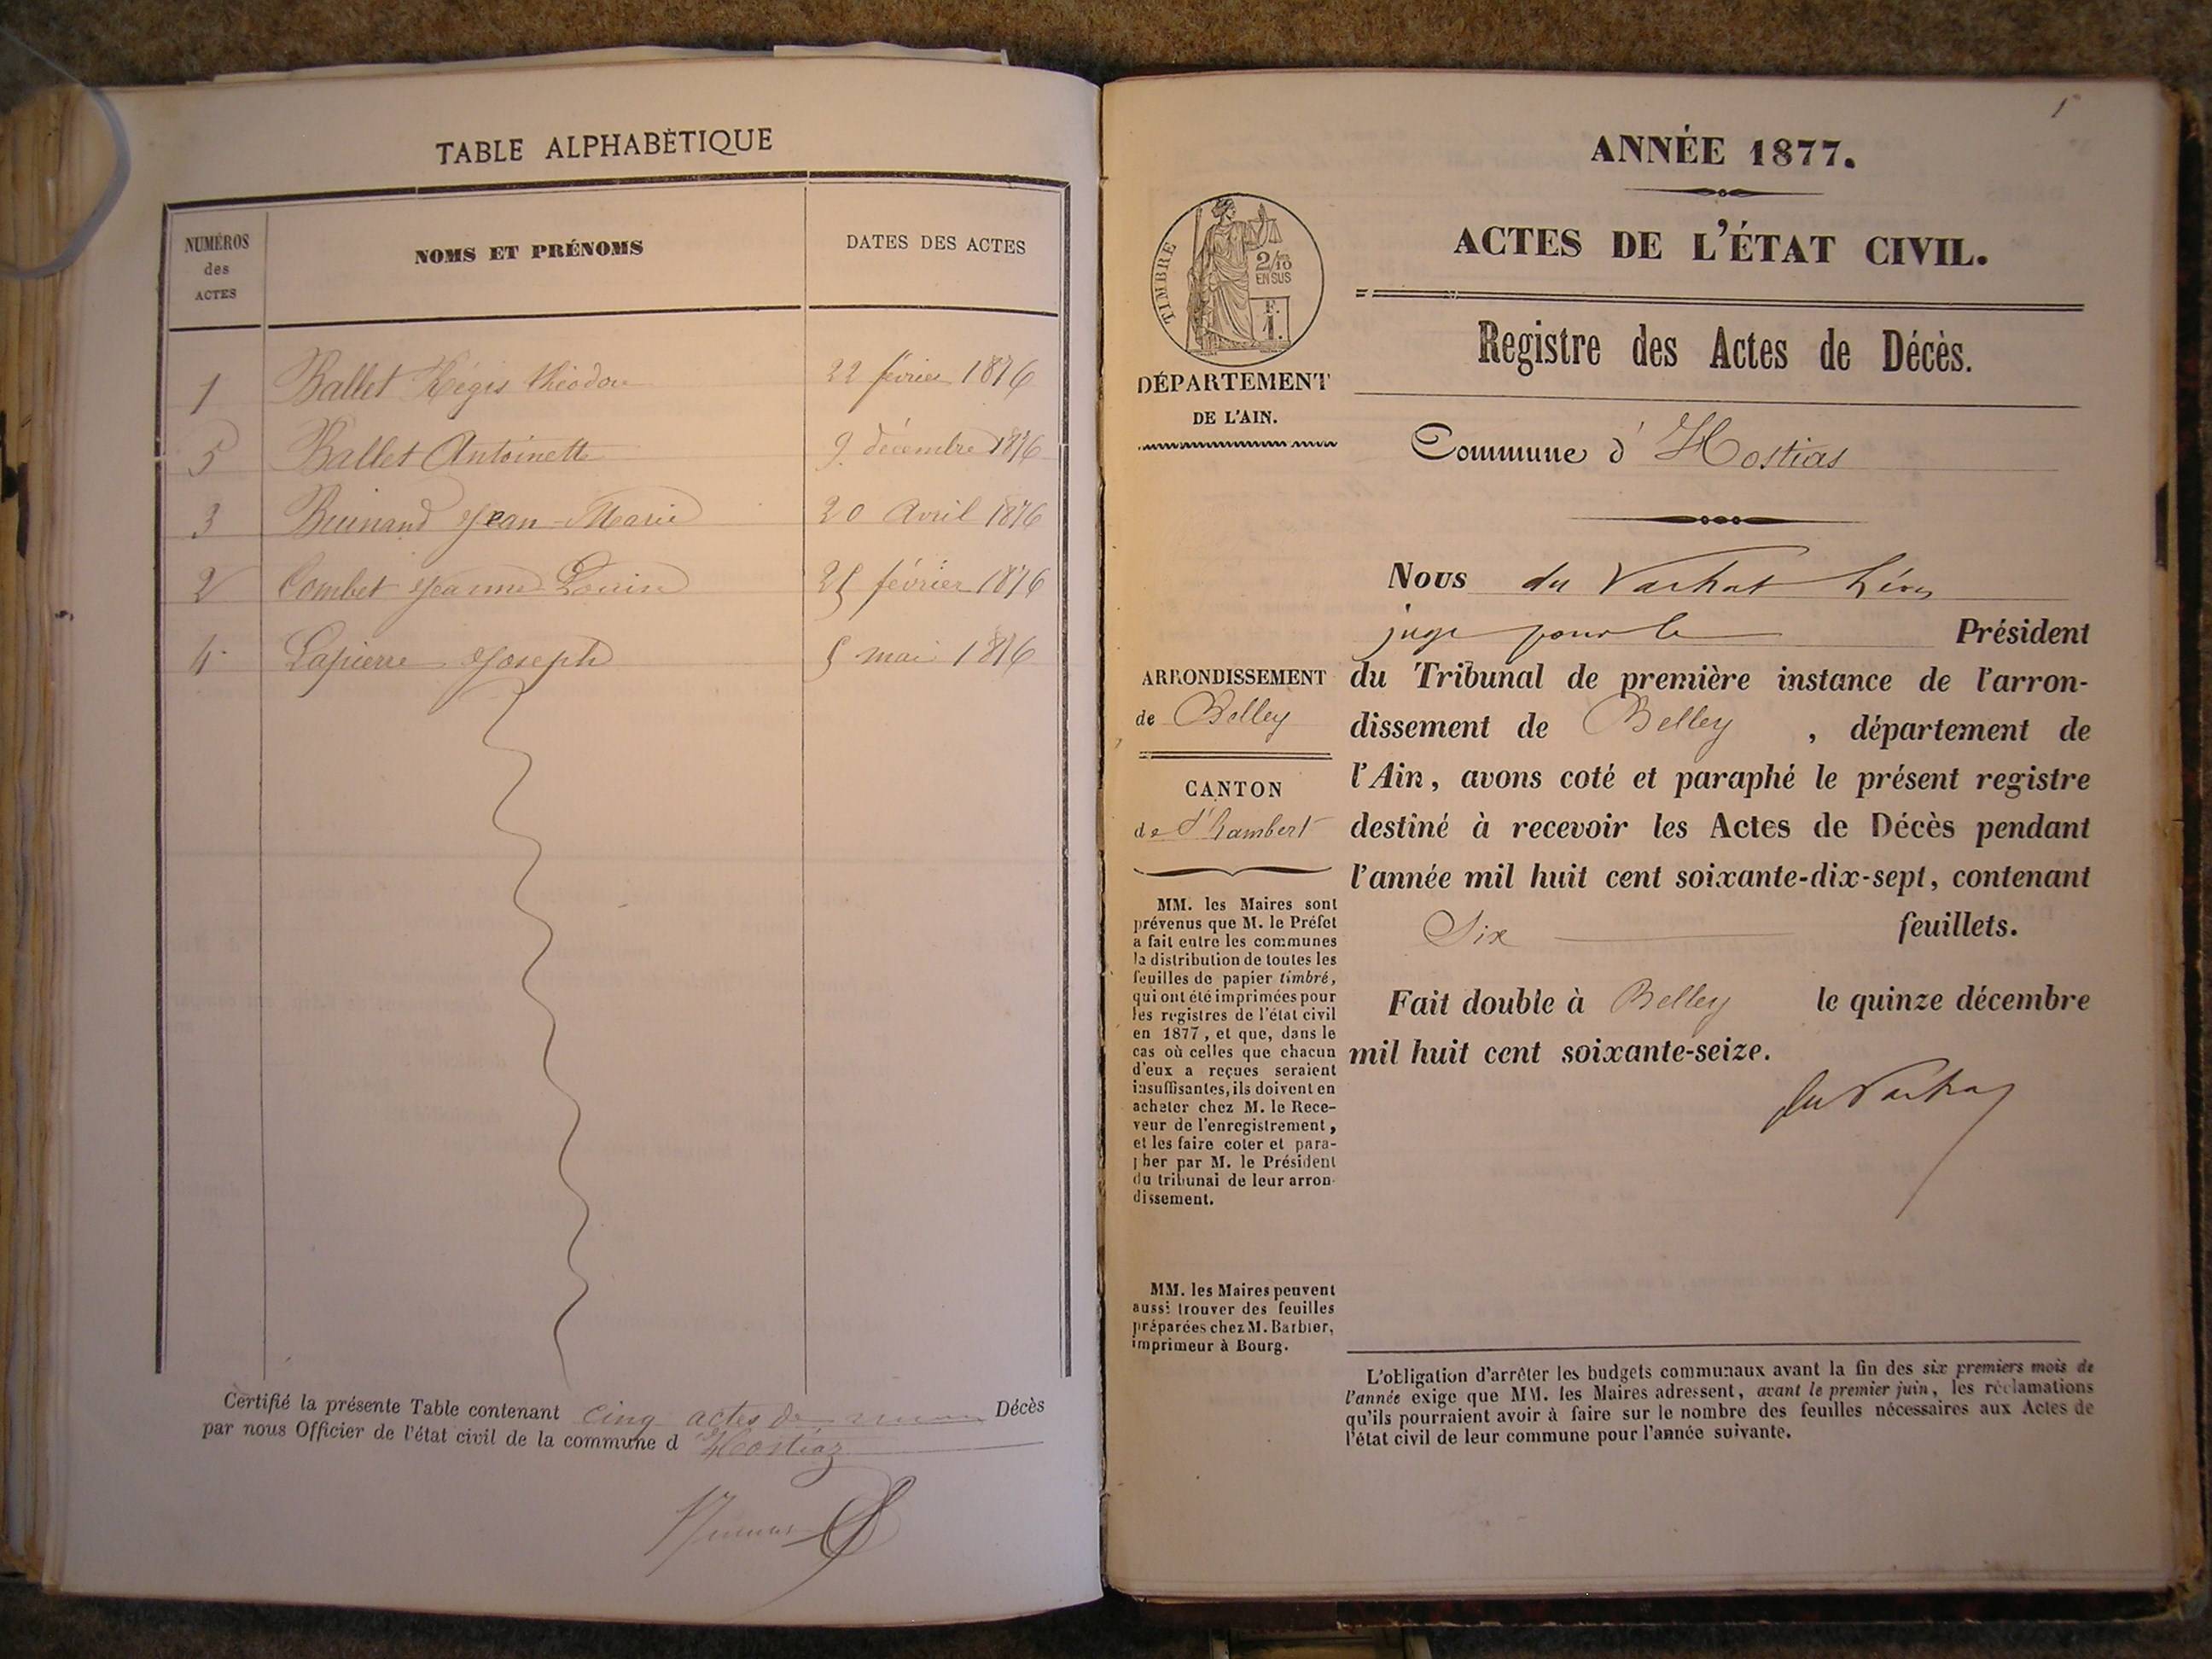 TABLE ALPHABÉTIQUE
NUMÉROS des ACTES
NOMS ET PRÉNOMS
DATES DES ACTES
1 Ballet Régis Théodore 22 février 1876
5 Ballet Antoinette 9 décembre 1876
3 Jean-Marie 20 Avril 1876
2 Combet Jeanne Louise 25 février 1876
4 Lapierre Joseph 5 mai 1876
Certifié la présente Table contenant cinq actes de Décès
par nous Officier de l'état civil de la commune d'Hostiaz
1
ANNÉE 1877.
ACTES DE L'ÉTAT CIVIL.
TIMBRE
2/10 EN SUS
F. 1.
Registre des Actes de Décès.
DÉPARTEMENT
DE L'AIN.
Commune d'Hostias
Nous du Vachat Léon
juge pour le Président
du Tribunal de première instance de l'arron-
dissement de Belley, département de
l'Ain, avons coté et paraphé le présent registre
destiné à recevoir les Actes de Décès pendant
l'année mil huit cent soixante-dix-sept, contenant
Six feuillets.
Fait double à Belley le quinze décembre
mil huit cent soixante-seize.
du Vachat
ARRONDISSEMENT
de Belley
CANTON
de St Rambert
MM. les Maires sont
prévenus que M. le Préfet
a fait entre les communes
la distribution de toutes les
feuilles de papier timbré,
qui ont été imprimées pour
les registres de l'état civil
en 1877, et que, dans le
cas où celles que chacun
d'eux a reçues seraient
insuffisantes, ils doivent en
acheter chez M. le Rece-
veur de l'enregistrement,
et les faire coter et para-
pher par M. le Président
du tribunal de leur arron-
dissement.
MM. les Maires peuvent
aussi trouver des feuilles
préparées chez M. Barbier,
imprimeur à Bourg.
L'obligation d'arrêter les budgets communaux avant la fin des six premiers mois de
l'année exige que MM. les Maires adressent, avant le premier juin, les réclamations
qu'ils pourraient avoir à faire sur le nombre des feuilles nécessaires aux Actes de
l'état civil de leur commune pour l'année suivante.